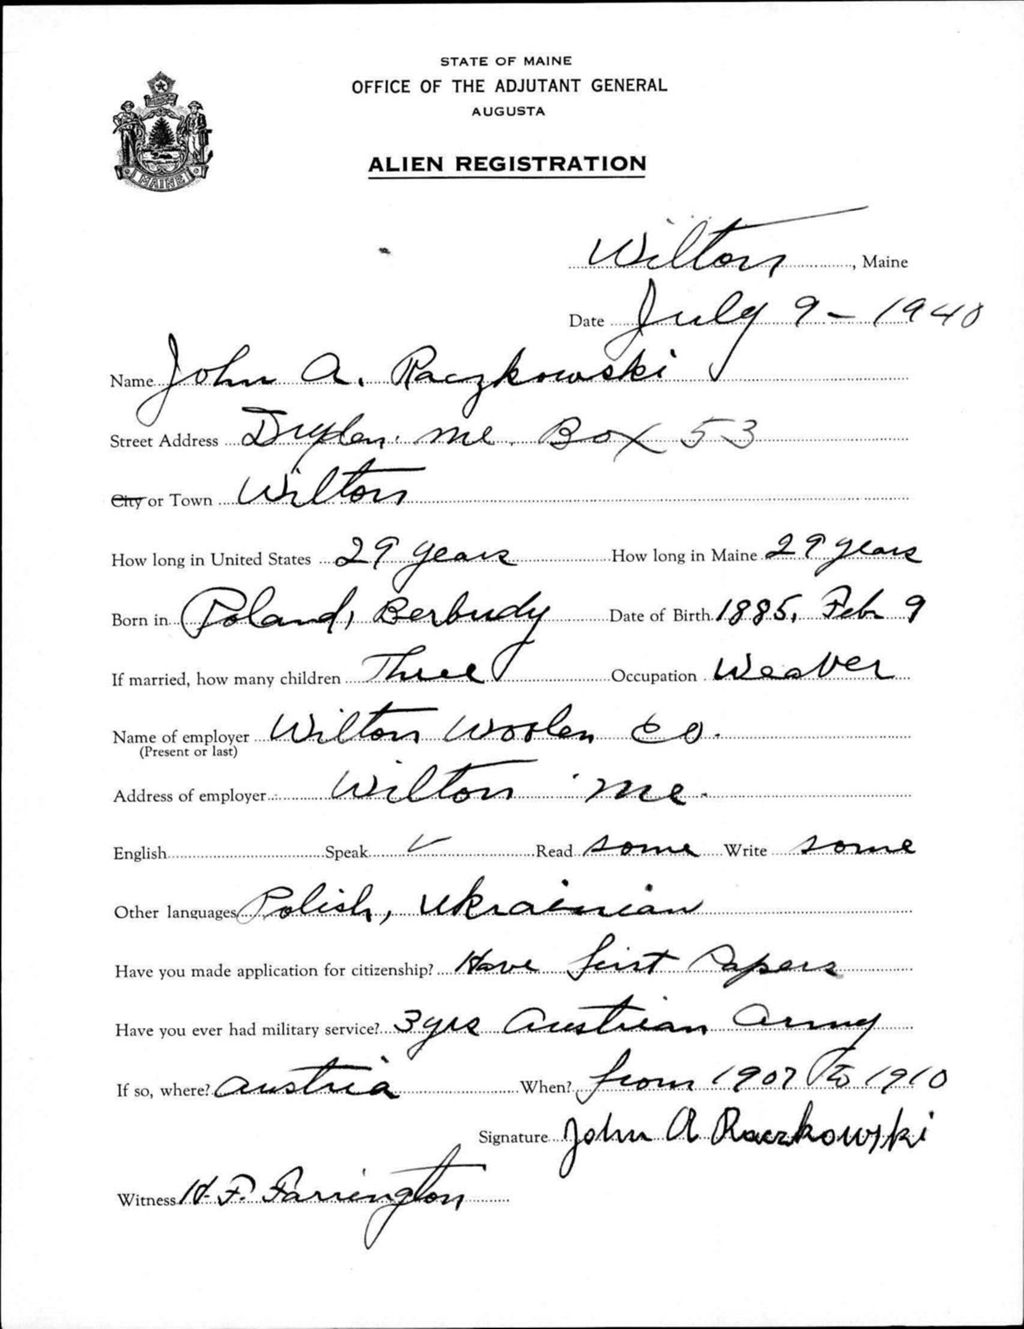 STATE OF MAINE
OFFICE OF THE ADJUTANT GENERAL
AUGUSTA
ALIEN REGISTRATION
MAINE
Wilton, Maine
Date July 9 - 1940
Name John A. Raczkowski
Street Address Dryden. Me. Box 53
City or Town Wilton
How long in United States 29 years How long in Maine 29 years
Born in Poland, Berbudy Date of Birth 1885, Feb 9
If married, how many children Three Occupation Weaver
Name of employer Wilton Woolen Co.
(Present or last)
Address of employer Wilton Me.
English Speak ✓ Read some Write some
Other languages Polish, Ukrainian
Have you made application for citizenship? Have first Papers
Have you ever had military service? 3 yrs Austrian Army
If so, where? Austria When? from 1907 to 1910
Signature John A Raczkowski
Witness H. P. Farrington